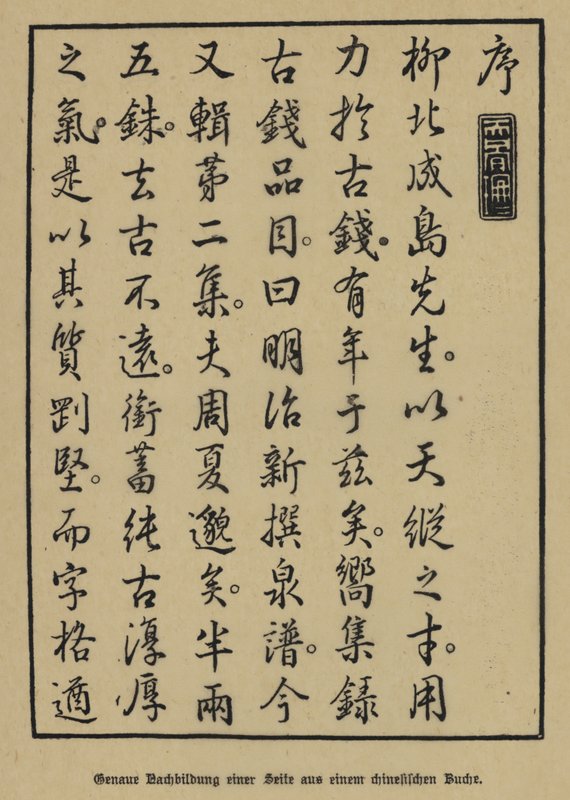 序
柳北成島先生。以天縱之才。用
力於古錢。有年于茲矣。嚮集錄
古錢品目。曰明治新撰泉譜。今
又輯第二集。夫周夏邈矣。半兩
五銖。去古不遠。銜蓄純古淳厚
之氣。是以其質剛堅。而字格遒
Genaue Nachbildung einer Seite aus einem chinesischen Buche.